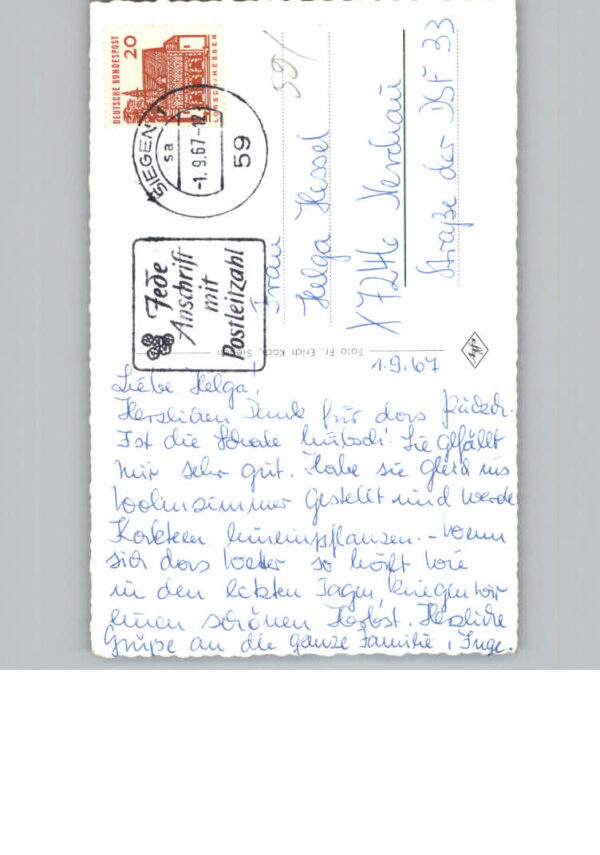 DEUTSCHE BUNDESPOST
20
LORSCH/HESSEN
SIEGEN 1
sa
-1.9.67-12
59
Jede
Anschrift
mit
Postleitzahl
59/
Frau
Helga Hessel
X 7246 Nerchau
Straße der DSF 33
Foto Fr. Erich Koch, Siegen
1.9.67
Liebe Helga!
Herzlichen Dank für das
Ist die Schale hübsch! Sie gefällt
mir sehr gut. Habe sie gleich ins
Wohnzimmer gestellt und werde
Kakteen hineinpflanzen. - Wenn
sich das Wetter so hält wie
in den letzten Tagen, kriegen wir
einen schönen Herbst. Herzliche
Grüße an die ganze Familie, Inge.